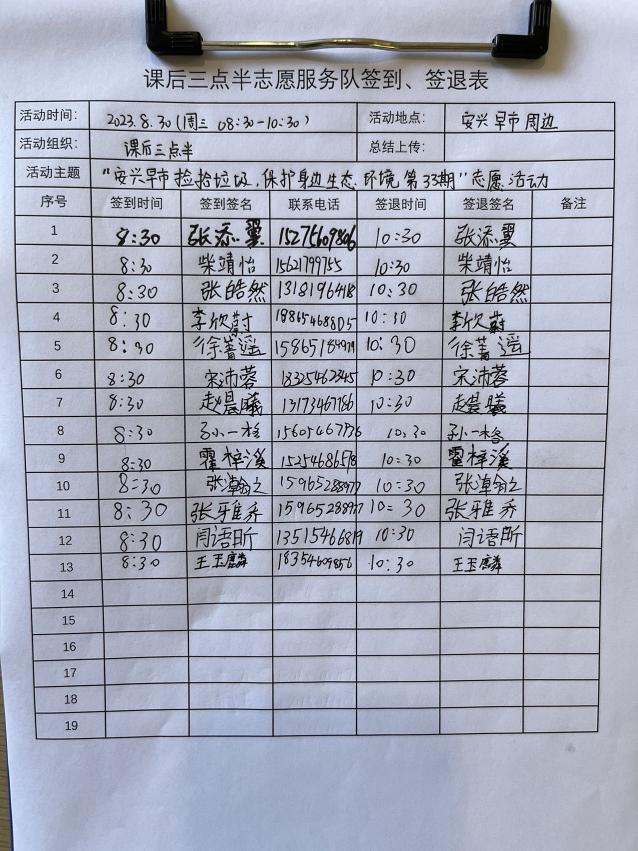 课后三点半志愿服务队签到、签退表
活动时间： 2023.8.30(周三 08:30-10:30) 活动地点： 安兴早市周边
活动组织： 课后三点半 总结上传：
活动主题 "安兴早市捡拾垃圾,保护身边生态环境第33期"志愿活动
序号 签到时间 签到签名 联系电话 签退时间 签退签名 备注
1 8:30 张添翼 15275609806 10:30 张添翼
2 8:30 柴靖怡 15621799755 10:30 柴靖怡
3 8:30 张皓然 10:30 张皓然
4 8:30 李欣蔚 18865468805 10:30 李欣蔚
5 8:30 徐菁遥 10:30 徐菁遥
6 8:30 宋沛蓉 18325462345 10:30 宋沛蓉
7 8:30 赵晨曦 13173467786 10:30 赵晨曦
8 8:30 孙一格 15605467776 10:30 孙一格
9 8:30 霍梓溪 15254686578 10:30 霍梓溪
10 8:30 15965288977 10:30
11 8:30 张雅乔 15965288977 10:30 张雅乔
12 8:30 闫语昕 13515466819 10:30 闫语昕
13 8:30 王玉麟 18354609856 10:30 王玉麟
14
15
16
17
18
19